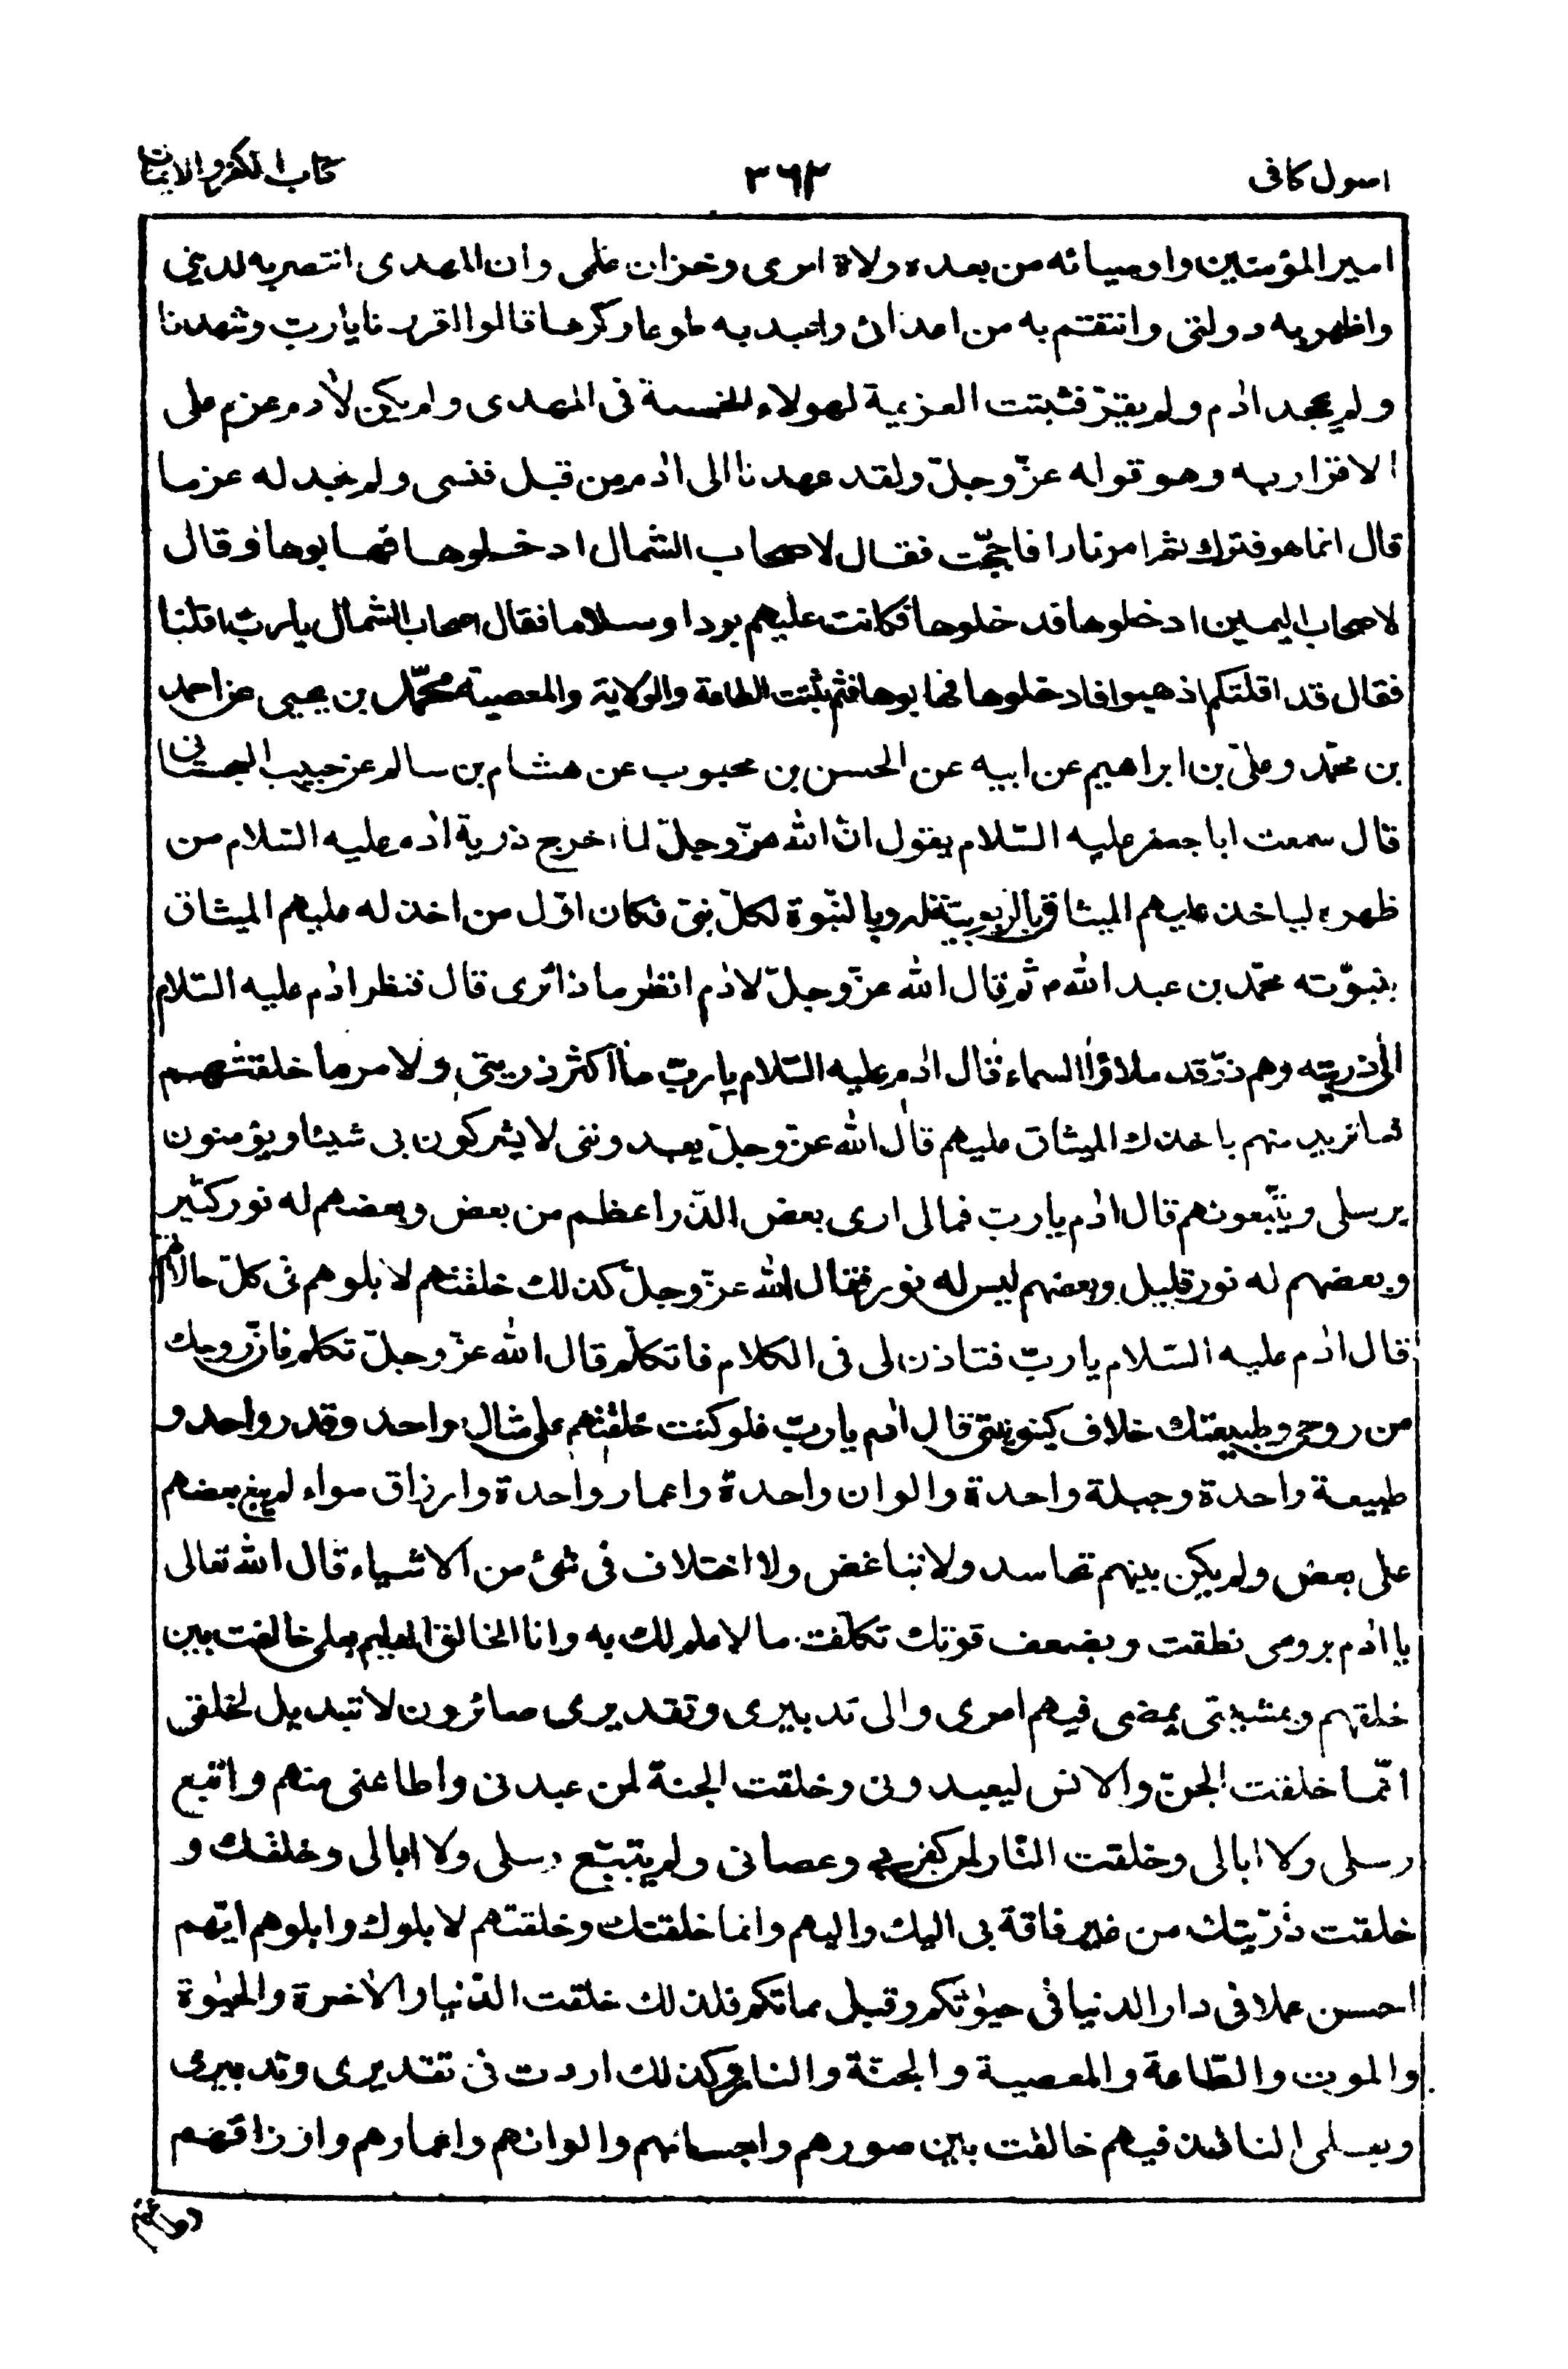 اصول كافى
٣٦٢
كتاب الكفر والايمان
امير المؤمنين واوصيائه من بعده ولاة امرى وخزان علمى وان المهدى انتصر به لدينى
واظهر به دولتى وانتقم به من اعدائى واعبد به طوعا وكرها قالوا اقررنا يا رب وشهدنا
ولم يجحد ادم ولم يقرّ فثبتت العزيمة لهولاء الخمسة فى المهدى ولم يكن لادم عزم على
الاقرار به وهو قوله عزّ وجلّ ولقد عهدنا الى ادم من قبل فنسى ولم نجد له عزما
قال انما هو فترك ثم امر نارا فاجّجت فقال لاصحاب الشمال ادخلوها فهابوها وقال
لاصحاب اليمين ادخلوها فدخلوها فكانت عليهم بردا وسلاما فقال اصحاب الشمال يا ربّ اقلنا
فقال قد اقلتكم اذهبوا فادخلوها فهابوها فثم ثبتت الطاعة والولاية والمعصية محمّد بن يحيى عن احمد
بن محمّد وعلىّ بن ابراهيم عن ابيه عن الحسن بن محبوب عن هشام بن سالم عن حبيب السجستانى
قال سمعت ابا جعفر عليه السّلام يقول انّ الله عزّ وجلّ لما اخرج ذرية ادم عليه السّلام من
ظهره لياخذ عليهم الميثاق بالربوبيّة له وبالنبّوة لكلّ نبىّ فكان اوّل من اخذ له عليهم الميثاق
بنبوّته محمّد بن عبد الله ص ثم قال الله عزّ وجلّ لادم انظر ما ذا ترى قال فنظر ادم عليه السّلام
الى ذريّته وهم ذرّ قد ملاؤا السماء قال ادم عليه السّلام يا ربّ ما اكثر ذريتى ولامر ما خلقتهم
فما تريد منهم باخذك الميثاق عليهم قال الله عزّ وجلّ يعبدوننى لا يشركون بى شيئا ويؤمنون
برسلى ويتّبعونهم قال ادم يا ربّ فمالى ارى بعض الذّر اعظم من بعض وبعضهم له نور كثير
وبعضهم له نور قليل وبعضهم ليس له نور فقال الله عزّ وجلّ كذلك خلقتهم لابلوهم فى كلّ حالاتهم
قال ادم عليه السّلام يا ربّ فتاذن لى فى الكلام فاتكلّم قال الله عزّ وجلّ تكلم فانّ روحك
من روحى وطبيعتك خلاف كينونيتى قال ادم يا ربّ فلو كنت خلقتهم على مثال واحد وقدر واحد و
طبيعة واحدة وجبلة واحدة والوان واحدة واعمار واحدة وارزاق سواء لم يبغ بعضهم
على بعض ولم يكن بينهم تحاسد ولا تباغض ولا اختلاف فى شئ من الاشياء قال الله تعالى
يا ادم بروحى نطقت وبضعف قوتك تكلّفت ما لا علم لك به وانا الخالق العليم بعلمى خالفت بين
خلقهم وبمشيتى يمضى فيهم امرى والى تدبيرى وتقديرى صائرون لا تبديل لخلقى
انّما خلقت الجنّ والانس ليعبدونى وخلقت الجنة لمن عبدنى واطاعنى منهم واتبع
رسلى ولا ابالى وخلقت النّار لمن كفر بى وعصانى ولم يتبّع رسلى ولا ابالى وخلقتك و
خلقت ذرّيتك من غير فاقة بى اليك واليهم وانما خلقتك وخلقتهم لابلوك وابلوهم ايّهم
احسن عملا فى دار الدنيا فى حيوتكم وقبل مماتكم فلذلك خلقت الدّنيا والاخرة والحيوة
والموت والطّاعة والمعصية والجنّة والنار وكذلك اردت فى تقديرى وتدبيرى
وبعلمى النافذ فيهم خالفت بين صورهم واجسامهم والوانهم واعمارهم وارزاقهم